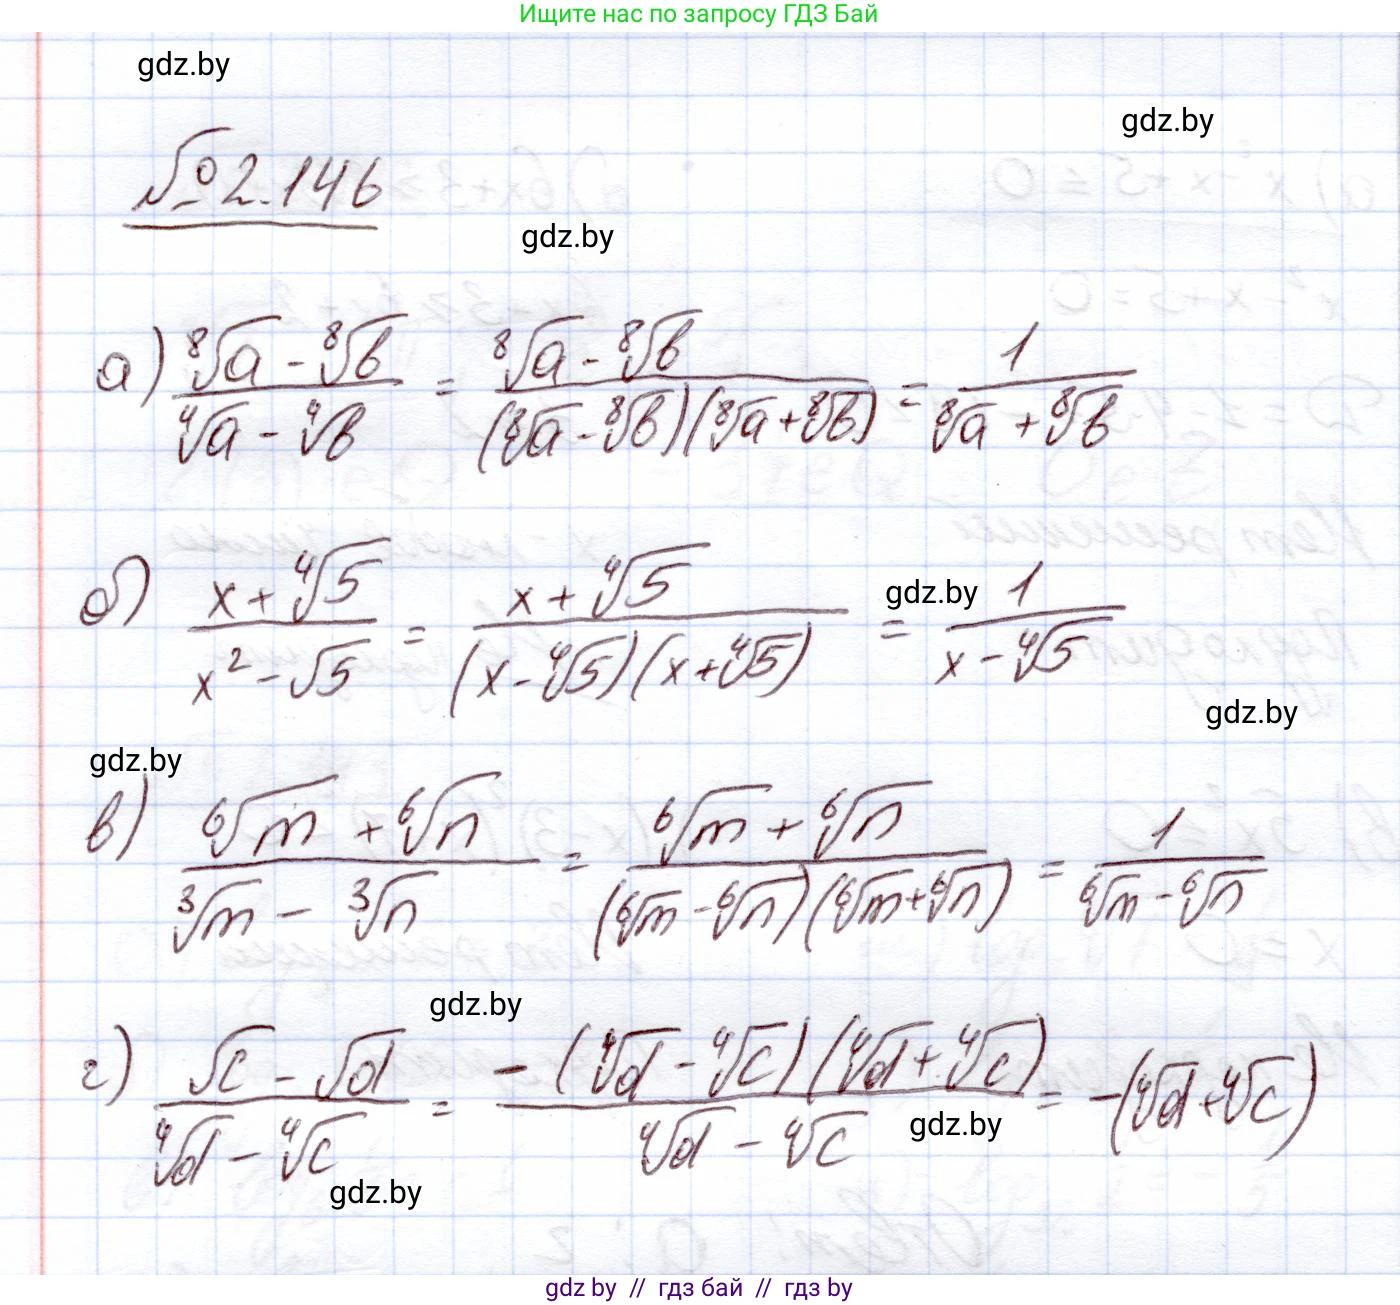 Ищите нас по запросу ГДЗ Бай
gdz.by
gdz.by
№ 2.146
gdz.by
а) (⁸√a - ⁸√b)/(⁴√a - ⁴√b) = (⁸√a - ⁸√b)/((⁸√a - ⁸√b)(⁸√a + ⁸√b)) = 1/(⁸√a + ⁸√b)
б) (x + ⁴√5)/(x² - √5) = (x + ⁴√5)/((x - ⁴√5)(x + ⁴√5)) = 1/(x - ⁴√5)
gdz.by
gdz.by
gdz.by
в) (⁶√m + ⁶√n)/(³√m - ³√n) = (⁶√m + ⁶√n)/((⁶√m - ⁶√n)(⁶√m + ⁶√n)) = 1/(⁶√m - ⁶√n)
gdz.by
г) (√c - √d)/(⁴√d - ⁴√c) = -(⁴√d - ⁴√c)(⁴√d + ⁴√c)/(⁴√d - ⁴√c) = -(⁴√d + ⁴√c)
gdz.by
gdz.by
gdz by // гдз бай // гдз by